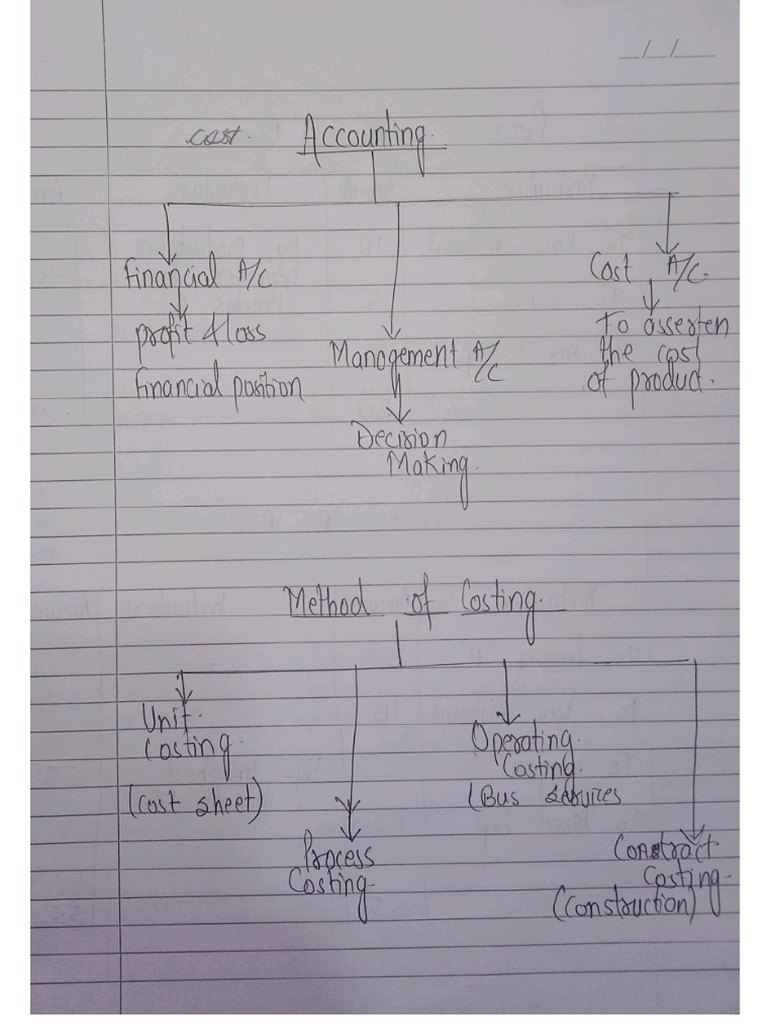 _/_/__
cost. Accounting.
Financial A/C
profit & loss
financial position
Management A/C
Decision
Making.
Cost A/C.
To asserten
the cost
of product.
Method of Costing.
Unit.
Costing.
(Cost sheet)
Process
Costing
Operating.
Costing.
(Bus services
Contract
Costing
(Construction)